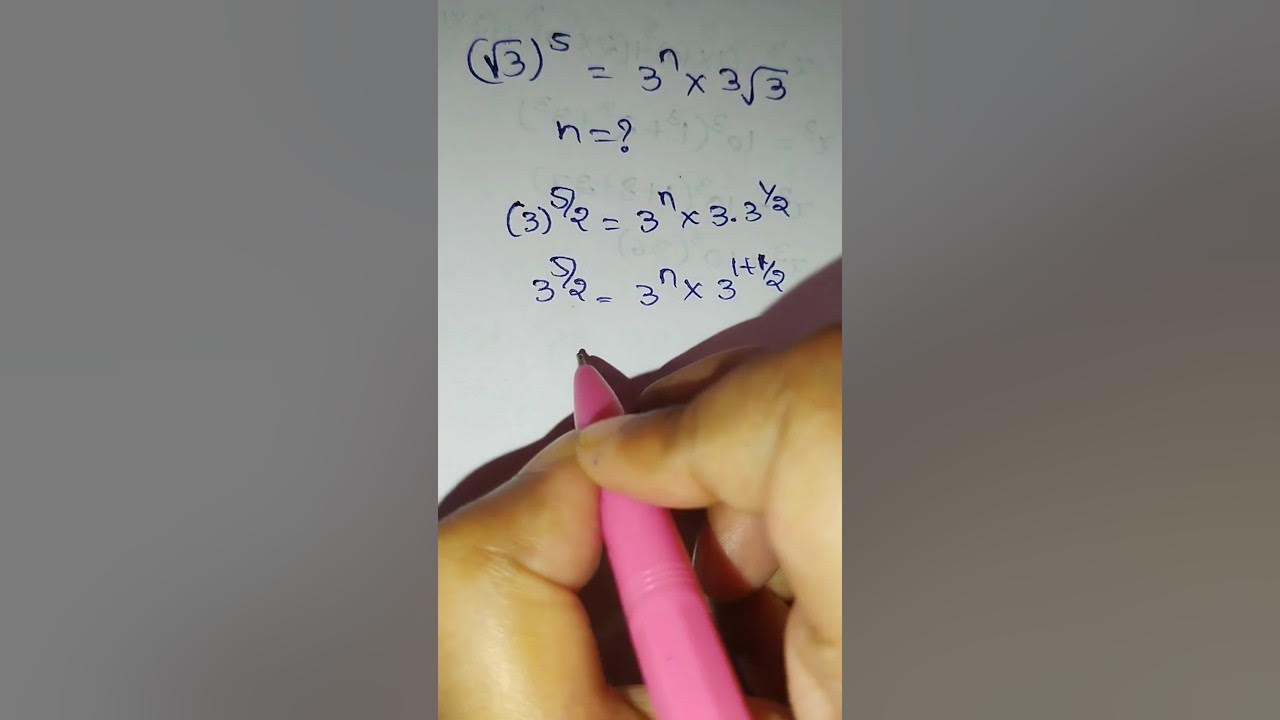 (√3)^5 = 3^n × 3√3
n = ?
(3)^5/2 = 3^n × 3.3^1/2
3^5/2 = 3^n × 3^1+1/2